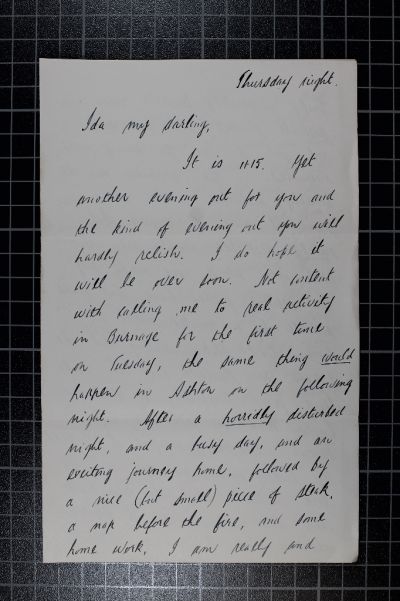 Thursday night.
Ida my darling,
It is 11.15. Yet
another evening out for you and
the kind of evening out you will
hardly relish. I do hope it
will be over soon. Not content
with calling me to real activity
in Burnage for the first time
on Tuesday, the same thing would
happen in Ashton on the following
night. After a horridly disturbed
night, and a busy day, and an
exciting journey home, followed by
a nice (but small) piece of steak,
a nap before the fire, and some
home work, I am really and